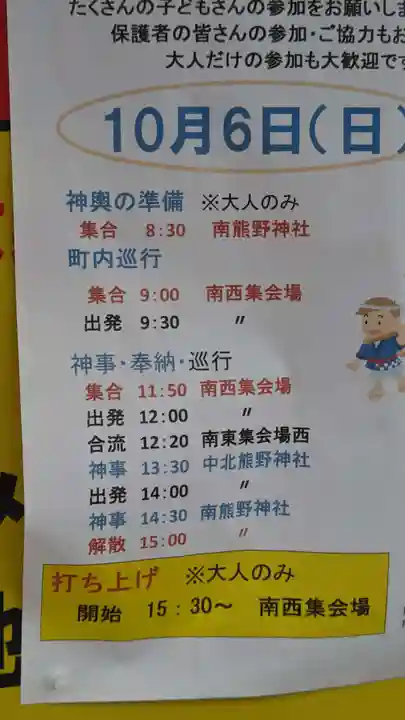 たくさんの子どもさんの参加をお願いしま
保護者の皆さんの参加・ご協力もお
大人だけの参加も大歓迎です
10月6日(日)
神輿の準備 ※大人のみ
集合 8:30 南熊野神社
町内巡行
集合 9:00 南西集会場
出発 9:30 〃
神事・奉納・巡行
集合 11:50 南西集会場
出発 12:00 〃
合流 12:20 南東集会場西
神事 13:30 中北熊野神社
出発 14:00 〃
神事 14:30 南熊野神社
解散 15:00 〃
打ち上げ ※大人のみ
開始 15:30～ 南西集会場